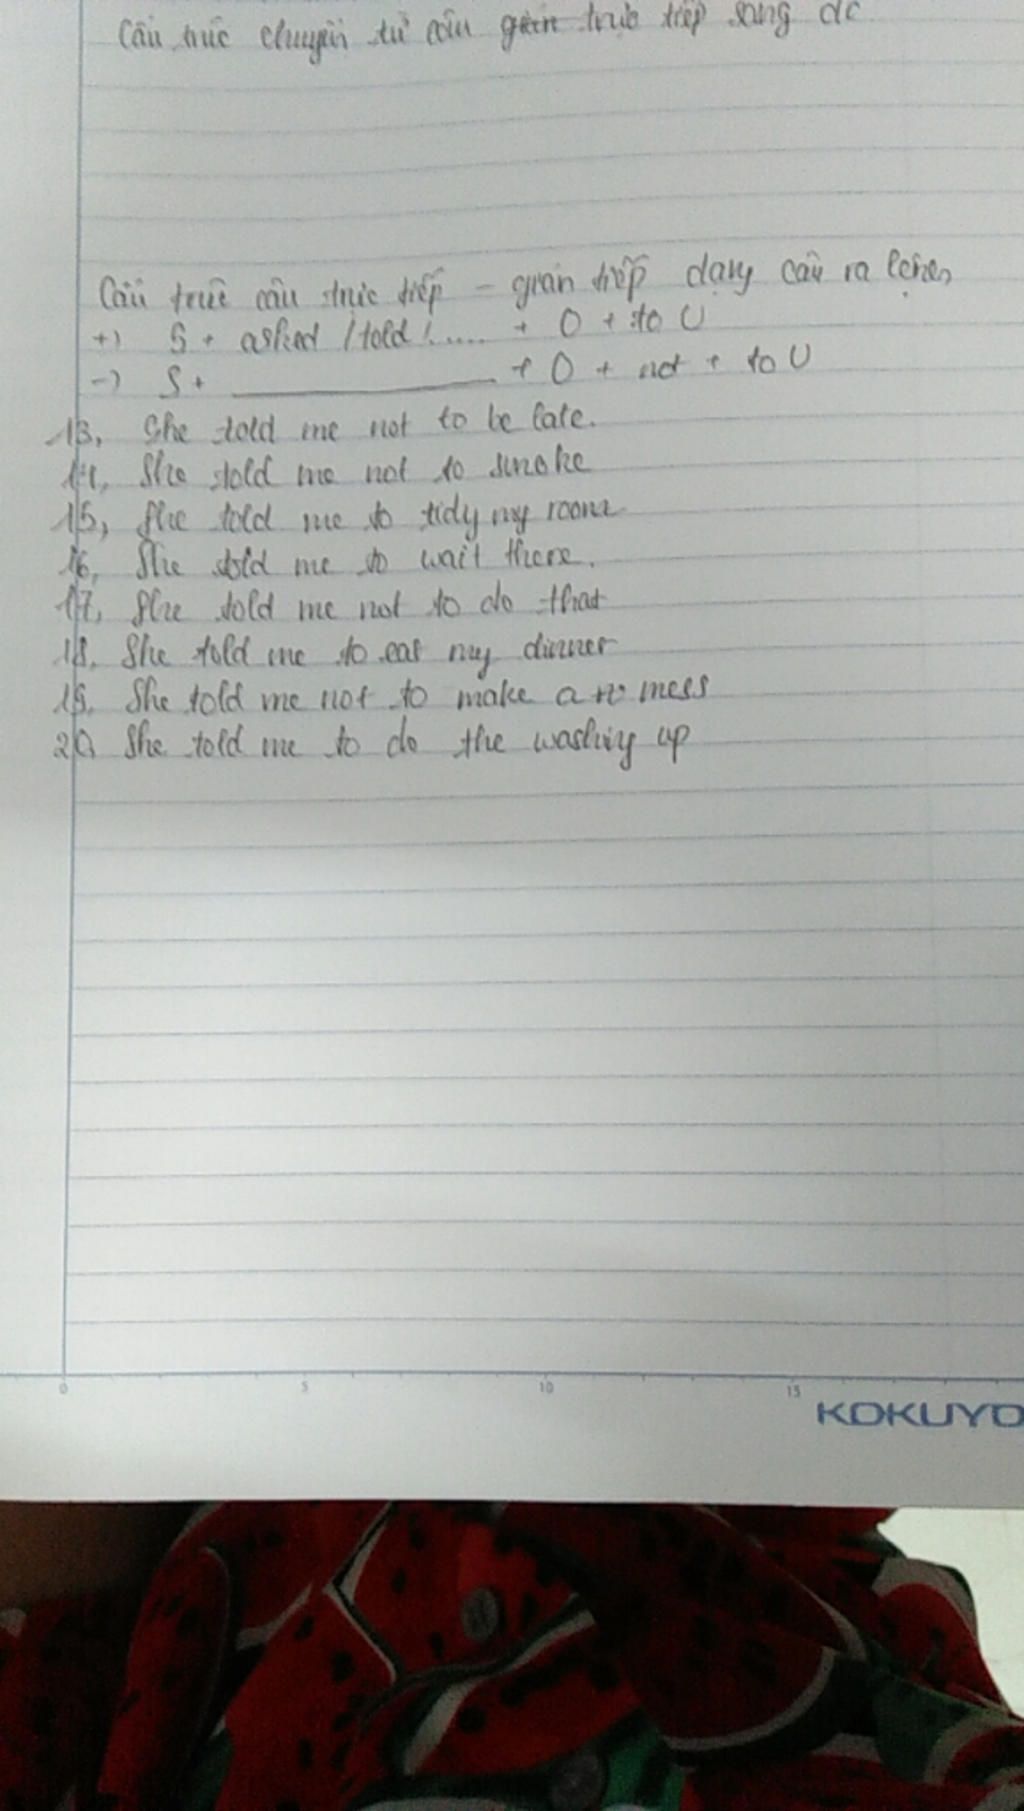 Cấu trúc chuyển từ câu gián trực tiếp sang
Cấu trúc câu trực tiếp - gián tiếp dạng câu ra lệnh
+) S + asked / told /..... + O + to V
-) S + ___ + O + not + to V
13, She told me not to be late.
14, She told me not to smoke
15, She told me to tidy my room
16, She told me to wait there.
17, She told me not to do that
18. She told me to eat my dinner
19. She told me not to make a mess
20. She told me to do the washing up
0 5 10 15
KOKUYO